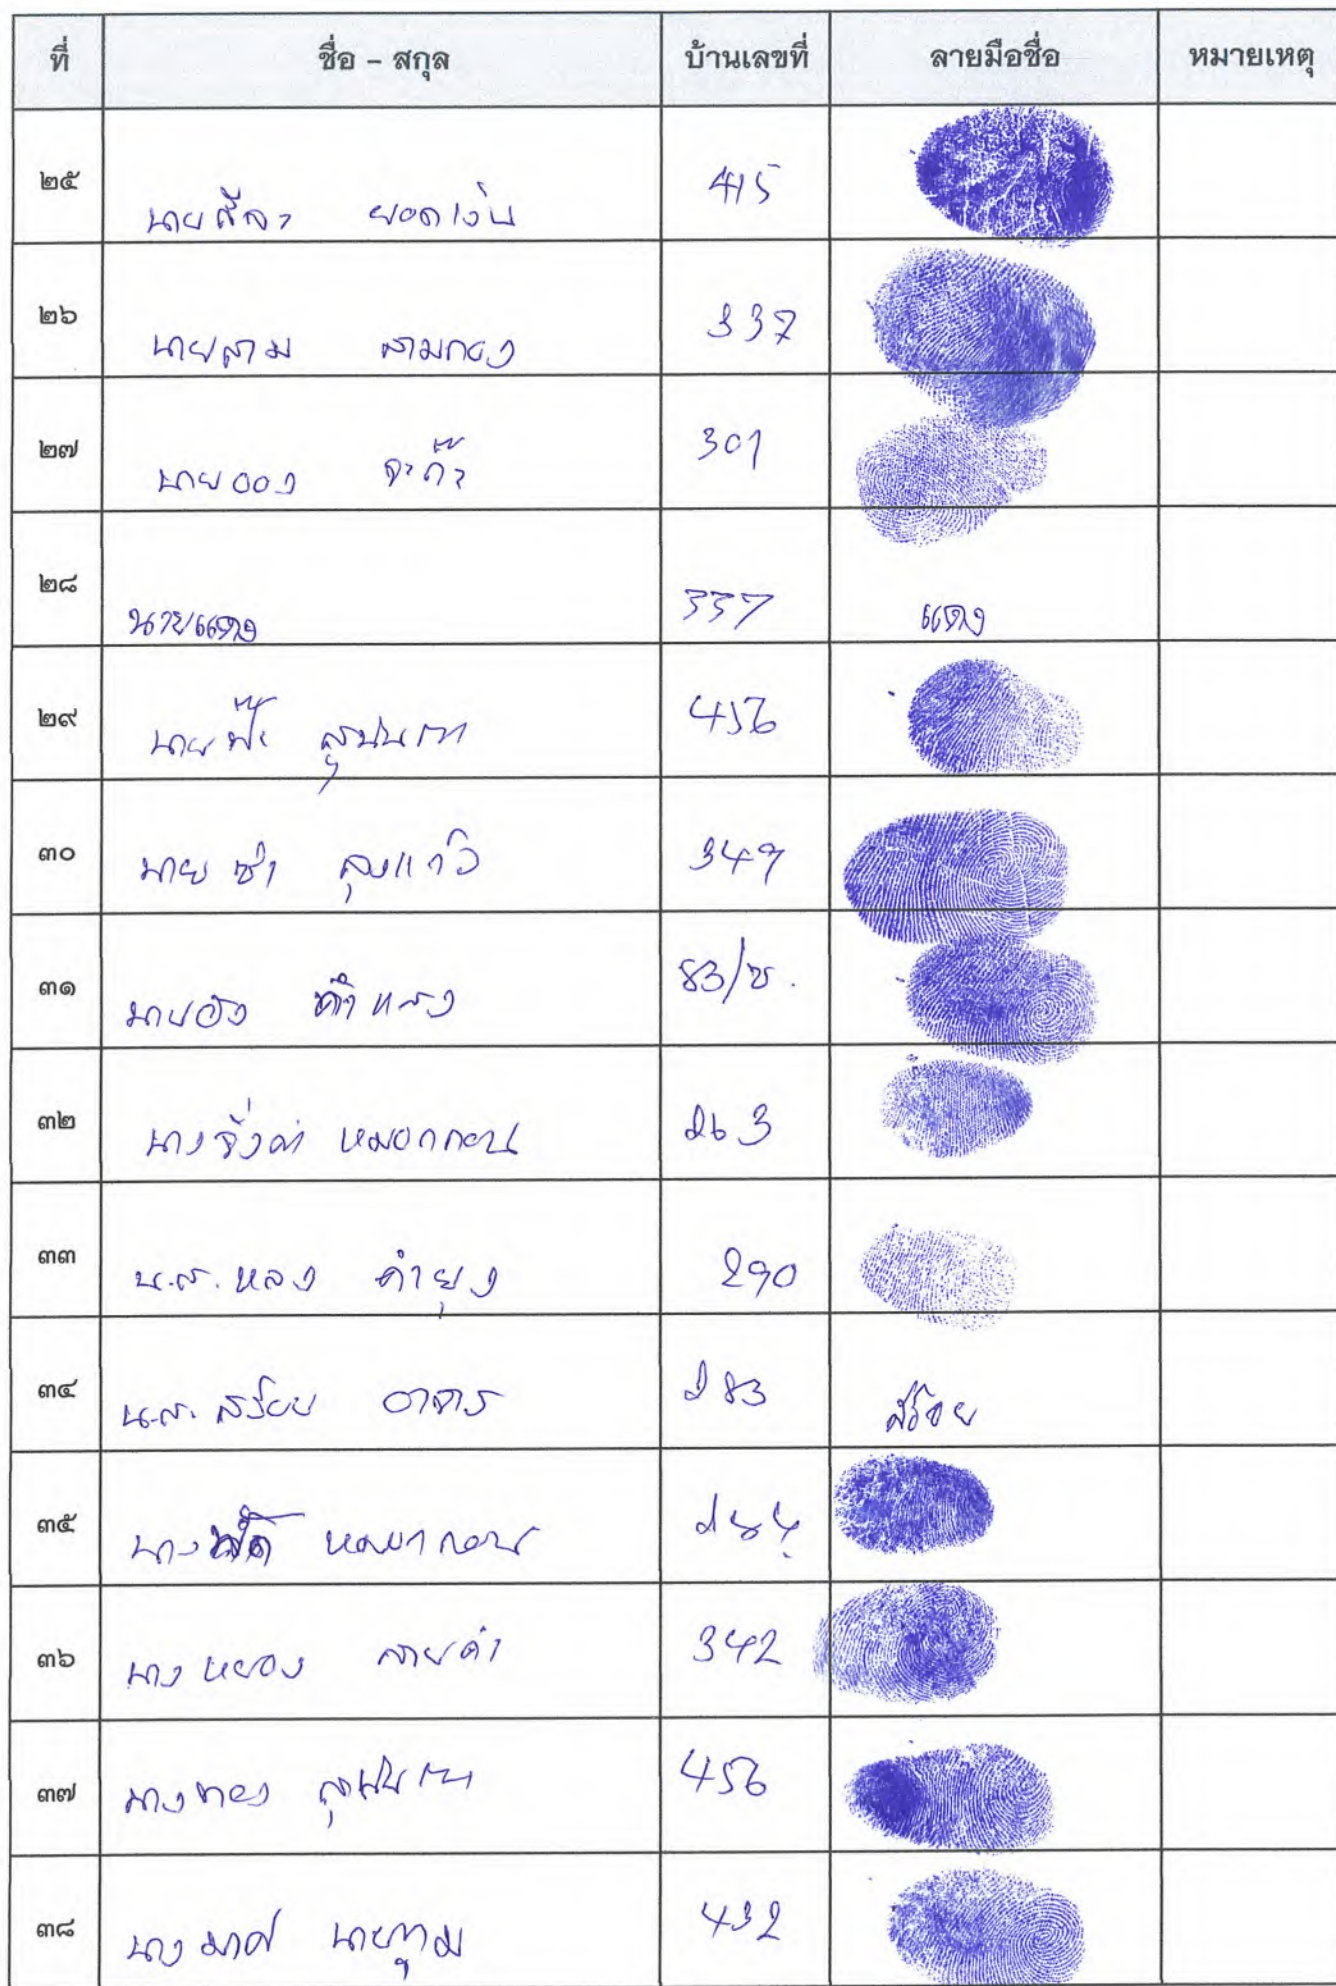 ที่ ชื่อ - สกุล บ้านเลขที่ ลายมือชื่อ หมายเหตุ
๒๕ นายศีลา ยอดเงิน 415
๒๖ นายสาม สามกอง 337
๒๗ นายออง 301
๒๘ นายแดง 337 แดง
๒๙ นาย สุปันตา 456
๓๐ นาย ซำ ลุงแก้ว 349
๓๑ นายอัง คำแสง 83/ซ.
๓๒ นางจิ่งคำ หมอกกอน 263
๓๓ น.ส. หลง คำยุง 290
๓๔ น.ส. สร้อย อาจาร 283 สร้อย
๓๕ นาง หมอกกอน
๓๖ นาง หยอง สายคำ 342
๓๗ นางทอง สุปันตา 456
๓๘ นาง มาศ 432